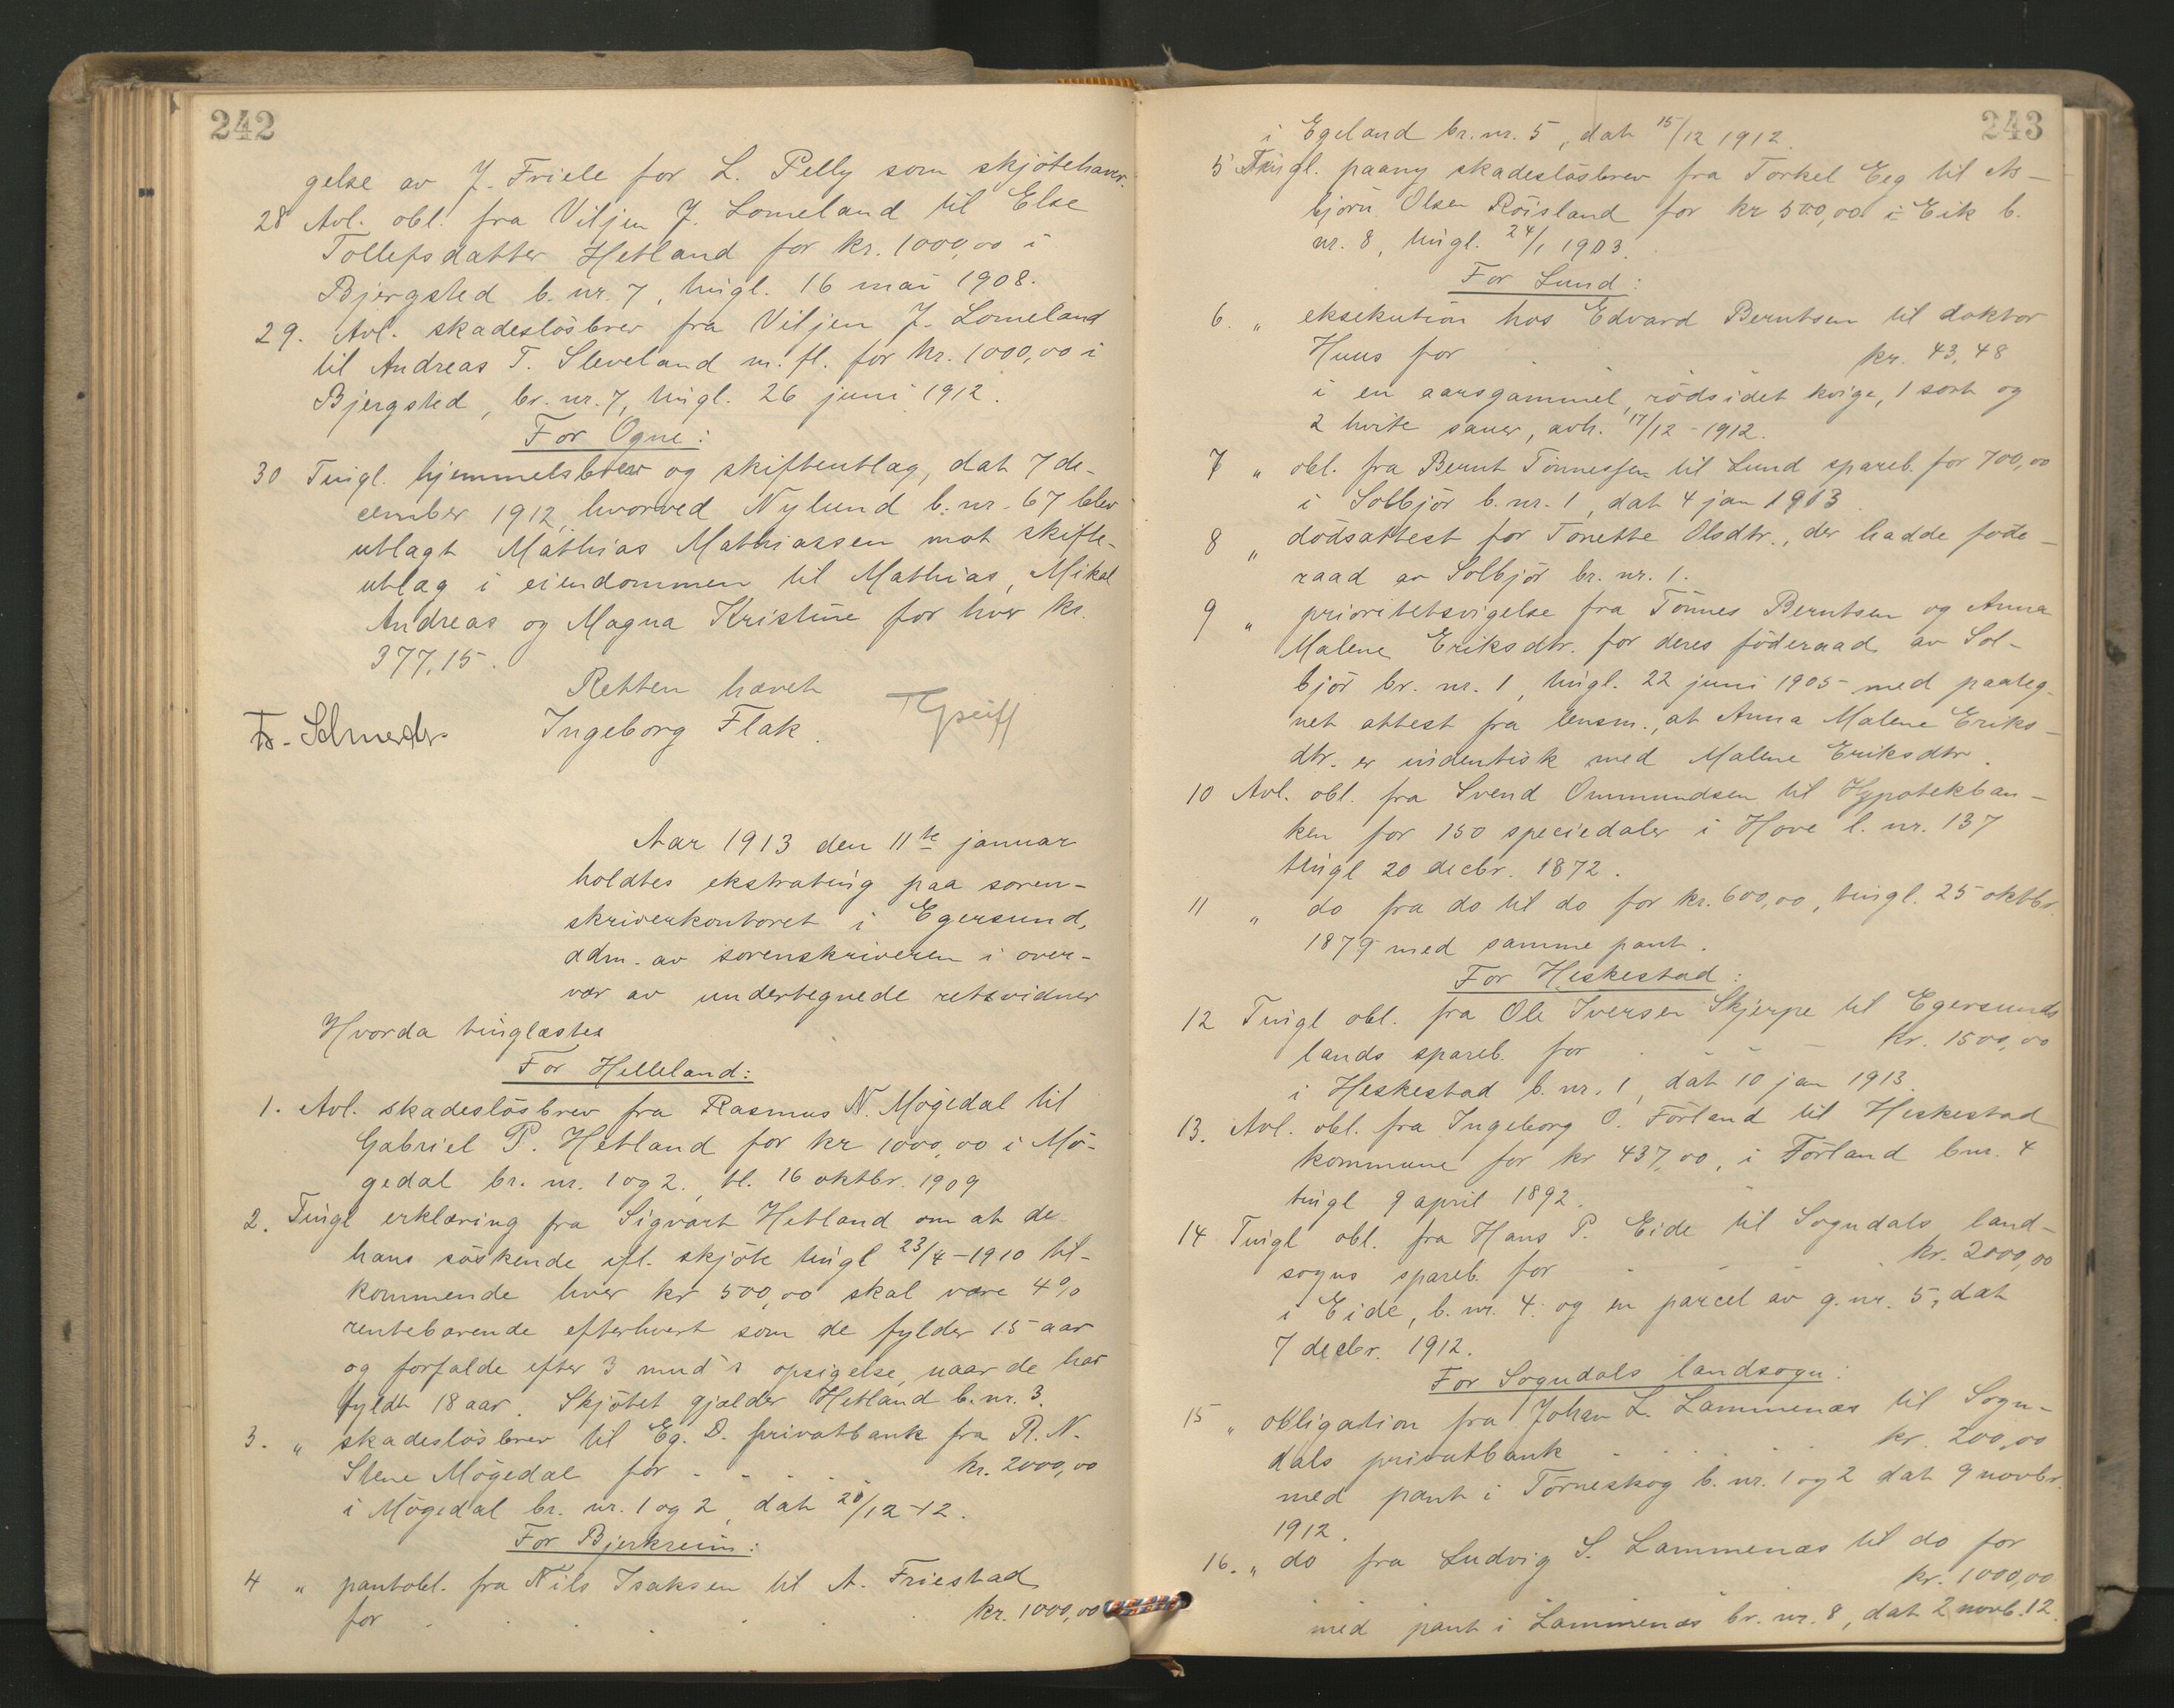 242
gelse av J. Friele for L. Pelly som skjötehaver.
28 Avl. obl. fra Viljen J. Lomeland til Else
Tollefsdatter Hetland for kr. 1000,00 i
Bjergsted b. nr. 7, tingl. 16 mai 1908.
29. Avl. skadeslösbrev fra Viljen J. Lomeland
til Andreas T. Sleveland m. fl. for kr. 1000,00 i
Bjergsted, br. nr. 7, tingl. 26 juni 1912.
For Ogne:
30 Tingl. hjemmelsbrev og skifteutlag, dat 7 de-
cember 1912, hvorved Nylund b. nr. 67 blev
utlagt Mathias Mathiassen mot skifte-
utlag i eiendommen til Mathias, Mikal
Andreas og Magna Kristine for hver kr.
377,15.
Retten hævet
Ingeborg Flak.
Aar 1913 den 11te januar
holdtes ekstrating paa soren-
skriverkontoret i Egersund,
adm. av sorenskriveren i over-
vær av undertegnede retsvidner
Hvorda tinglæstes
For Helleland:
1. Avl. skadeslösbrev fra Rasmus N. Mögedal til
Gabriel P. Hetland for kr 1000,00 i Mö-
gedal br. nr. 1 og 2, tl. 16 oktbr. 1909
2. Tingl erklæring fra Sigvart Hetland om at de
hans söskende efl. skjöte tingl 23/4-1910 til-
kommende hver kr 500,00 skal være 4%
rentebærende efterhvert som de fylder 15 aar
og forfalde efter 3 mnd's opsigelse, naar de har
fyldt 18 aar. Skjötet gjælder Hetland b. nr. 3.
3. " skadeslösbrev til Eg. D. privatbank fra R. N.
Stene Mögedal for - - - - - kr. 2000,00
i Mögedal br. nr. 1 og 2, dat 20/12-12.
For Bjerkreim:
4 " pantobl. fra Nils Isaksen til A. Friestad
for . . . . . kr. 1000,00
243
i Egeland br. nr. 5, dat 15/12 1912.
5 Tingl. paany skadeslösbrev fra Torkel Eeg til As-
björn Olsen Röisland for kr 500,00 i Eik b.
nr. 8, tingl. 24/1 1903.
For Lund:
6. " eksekution hos Edvard Berntsen til doktor
Huus for kr. 43,48
i en aarsgammel, rödsidet kvige, 1 sort og
2 hvite sauer, avh. 17/12-1912.
7 " obl. fra Bernt Tönnessen til Lund spareb. for 700,00
i Solbjör b. nr. 1, dat 4 jan 1913.
8 " dödsattest for Tonette Olsdtr., der hadde föde-
raad av Solbjör br. nr. 1.
9 " prioritetsvigelse fra Tönnes Berntsen og Anna
Malene Eriksdtr. for deres föderaad av Sol-
björ br. nr. 1, tingl. 22 juni 1905 med paateg-
net attest fra lensm., at Anna Malene Eriks-
dtr. er indentisk med Malene Eriksdtr.
10 Avl. obl. fra Svend Ommundsen til Hypotekban-
ken for 150 speciedaler i Hove l. nr. 137
tingl 20 decbr. 1872.
11 " do fra do til do for kr. 600,00, tingl. 25 oktbr.
1879 med samme pant.
For Heskestad:
12 Tingl obl. fra Ole Iversen Skjerpe til Egersunds
lands spareb. for . - - - kr. 1500,00
i Heskestad b. nr. 1, dat 10 jan 1913.
13. Avl. obl. fra Ingeborg O. Förland til Heskestad
kommune for kr 437,00, i Förland bnr. 4
tingl 9 april 1892.
14 Tingl obl. fra Hans P. Eide til Sogndals land-
sogns spareb. for - - - - kr. 2000,00
i Eide, b. nr. 4. og en parcel av g. nr. 5, dat
7 decbr. 1912.
For Sogndals landsogn:
15 " obligation fra Johan L. Lammenæs til Sogn-
dals privatbank - . . . . . kr. 200,00
med pant i Törneskog b. nr. 1 og 2 dat 9 novbr.
1912.
16. " do fra Ludvig S. Lammenæs til do for
kr. 1000,00
med pant i Lammenæs br. nr. 8, dat 2 novb. 12.